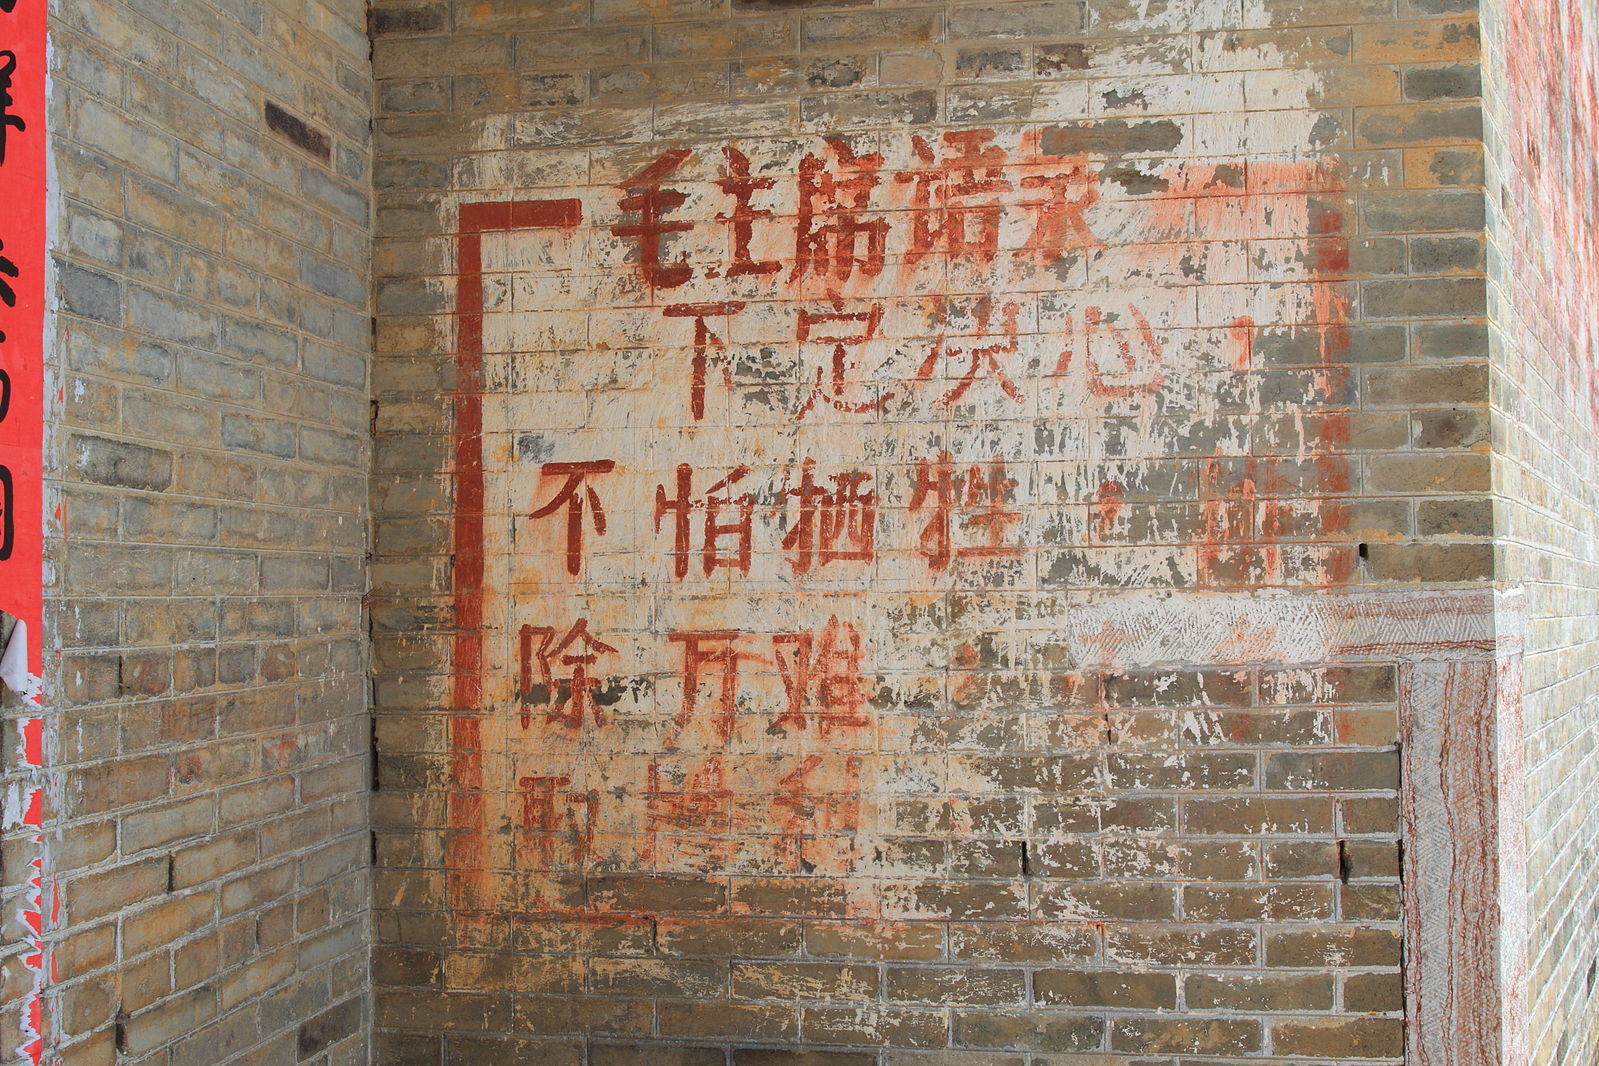 毛主席語录
下定决心，
不怕牺牲，排
除万难
取胜利